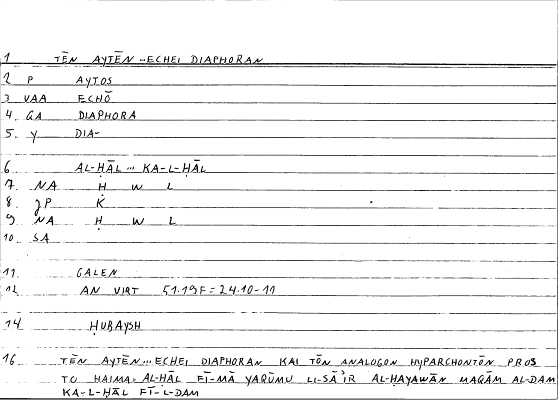 1 TĒN AYTĒN...ECHEI DIAPHORAN
2 P AYTOS
3 VAA ECHŌ
4 GA DIAPHORA
5. Y DIA-
6 AL-ḤĀL... KA-L-ḤĀL
7. NA Ḥ W L
8. JP K
9 NA Ḥ W L
10. SA
11 GALEN
12 AN VIRT 51.19F = 24.10-11
14 ḤUBAYSH
16 TĒN AYTĒN...ECHEI DIAPHORAN KAI TŌN ANALOGON HYPARCHONTŌN PROS
TO HAIMA: AL-ḤĀL FĪ-MĀ YAQŪMU LI-SĀ'IR AL-HAYAWĀN MAQĀM AL-DAM
KA-L-ḤĀL FĪ-L-DAM